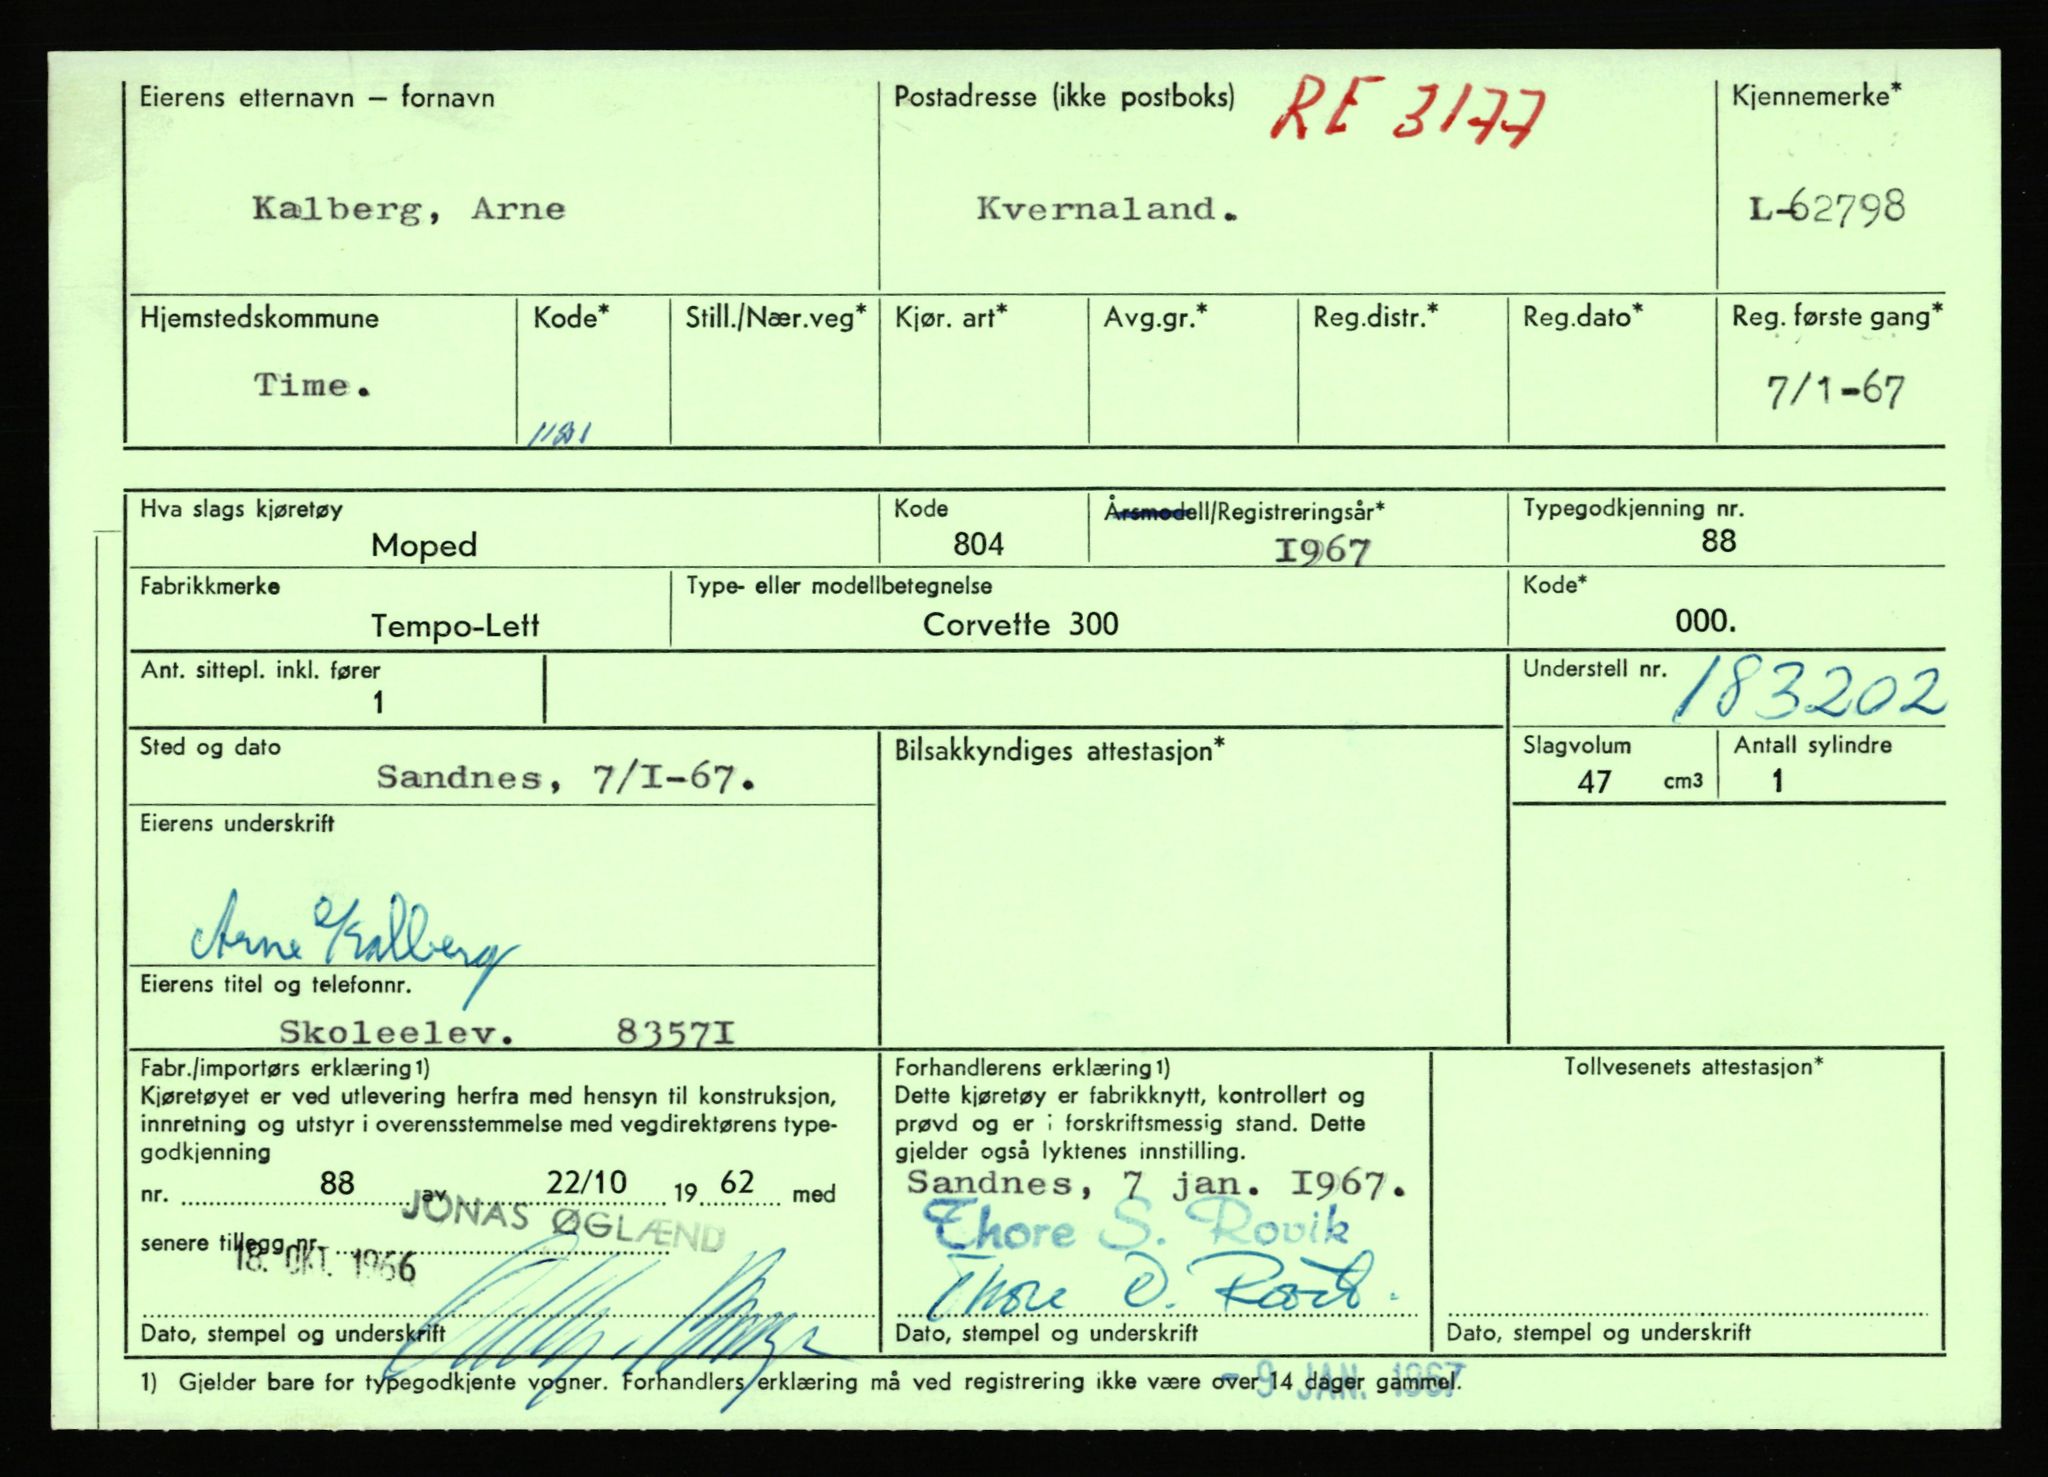 Eierens etternavn – fornavn
Postadresse (ikke postboks)
RE 3177
Kjennemerke*
Kalberg, Arne
Kvernaland.
L-62798
Hjemstedskommune
Kode*
Still./Nær.veg*
Kjør. art*
Avg.gr.*
Reg.distr.*
Reg.dato*
Reg. første gang*
Time.
7/1-67
Hva slags kjøretøy
Kode
Årsmodell/Registreringsår*
Typegodkjenning nr.
Moped
804
I967
88
Fabrikkmerke
Type- eller modellbetegnelse
Kode*
Tempo-Lett
Corvette 300
000.
Ant. sittepl. inkl. fører
1
Understell nr.
183202
Sted og dato
Sandnes, 7/I-67.
Bilsakkyndiges attestasjon*
Slagvolum
47 cm3
Antall sylindre
1
Eierens underskrift
Arne Kalberg
Eierens titel og telefonnr.
Skoleelev. 8357I
Fabr./importørs erklæring1)
Kjøretøyet er ved utlevering herfra med hensyn til konstruksjon,
innretning og utstyr i overensstemmelse med vegdirektørens type-
godkjenning
nr. 88 av 22/10 19 62 med
JONAS ØGLÆND
senere tillegg nr.
18. OKT. 1966
Dato, stempel og underskrift
Forhandlerens erklæring1)
Dette kjøretøy er fabrikknytt, kontrollert og
prøvd og er i forskriftsmessig stand. Dette
gjelder også lyktenes innstilling.
Sandnes, 7 jan. I967.
Thore S. Rovik
Dato, stempel og underskrift
Tollvesenets attestasjon*
Dato, stempel og underskrift
1) Gjelder bare for typegodkjente vogner. Forhandlers erklæring må ved registrering ikke være over 14 dager gammel.
- 9 JAN. 1967